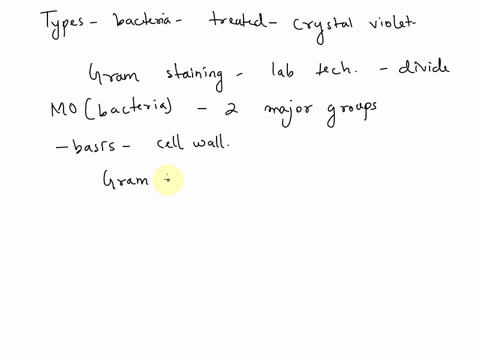 Types - bacteria - treated - crystal violet
Gram staining - lab tech. - divide
MO (bacteria) - 2 major groups
- basis - cell wall.
Gram +